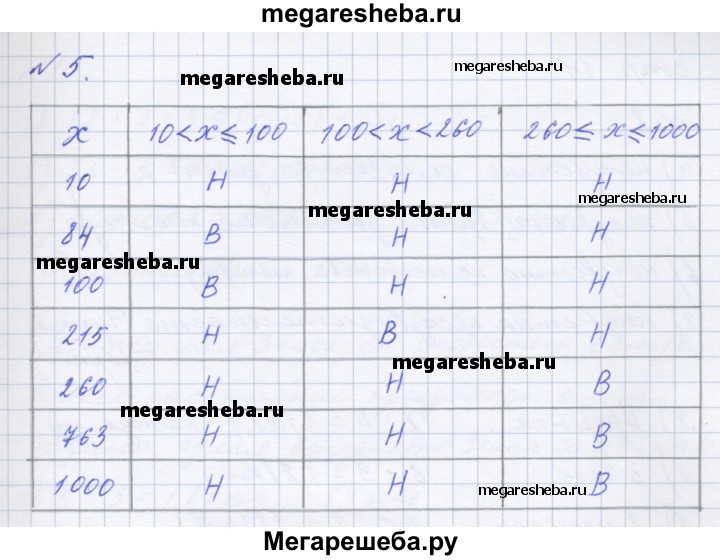 megaresheba.ru
№ 5.
megaresheba.ru
megaresheba.ru
x 10<x≤100 100<x<260 260≤x≤1000
10 Н Н Н
megaresheba.ru
megaresheba.ru
84 В Н Н
megaresheba.ru
100 В Н Н
215 Н В Н
megaresheba.ru
260 Н Н В
megaresheba.ru
763 Н Н В
1000 Н Н В
megaresheba.ru
Мегарешеба.ру